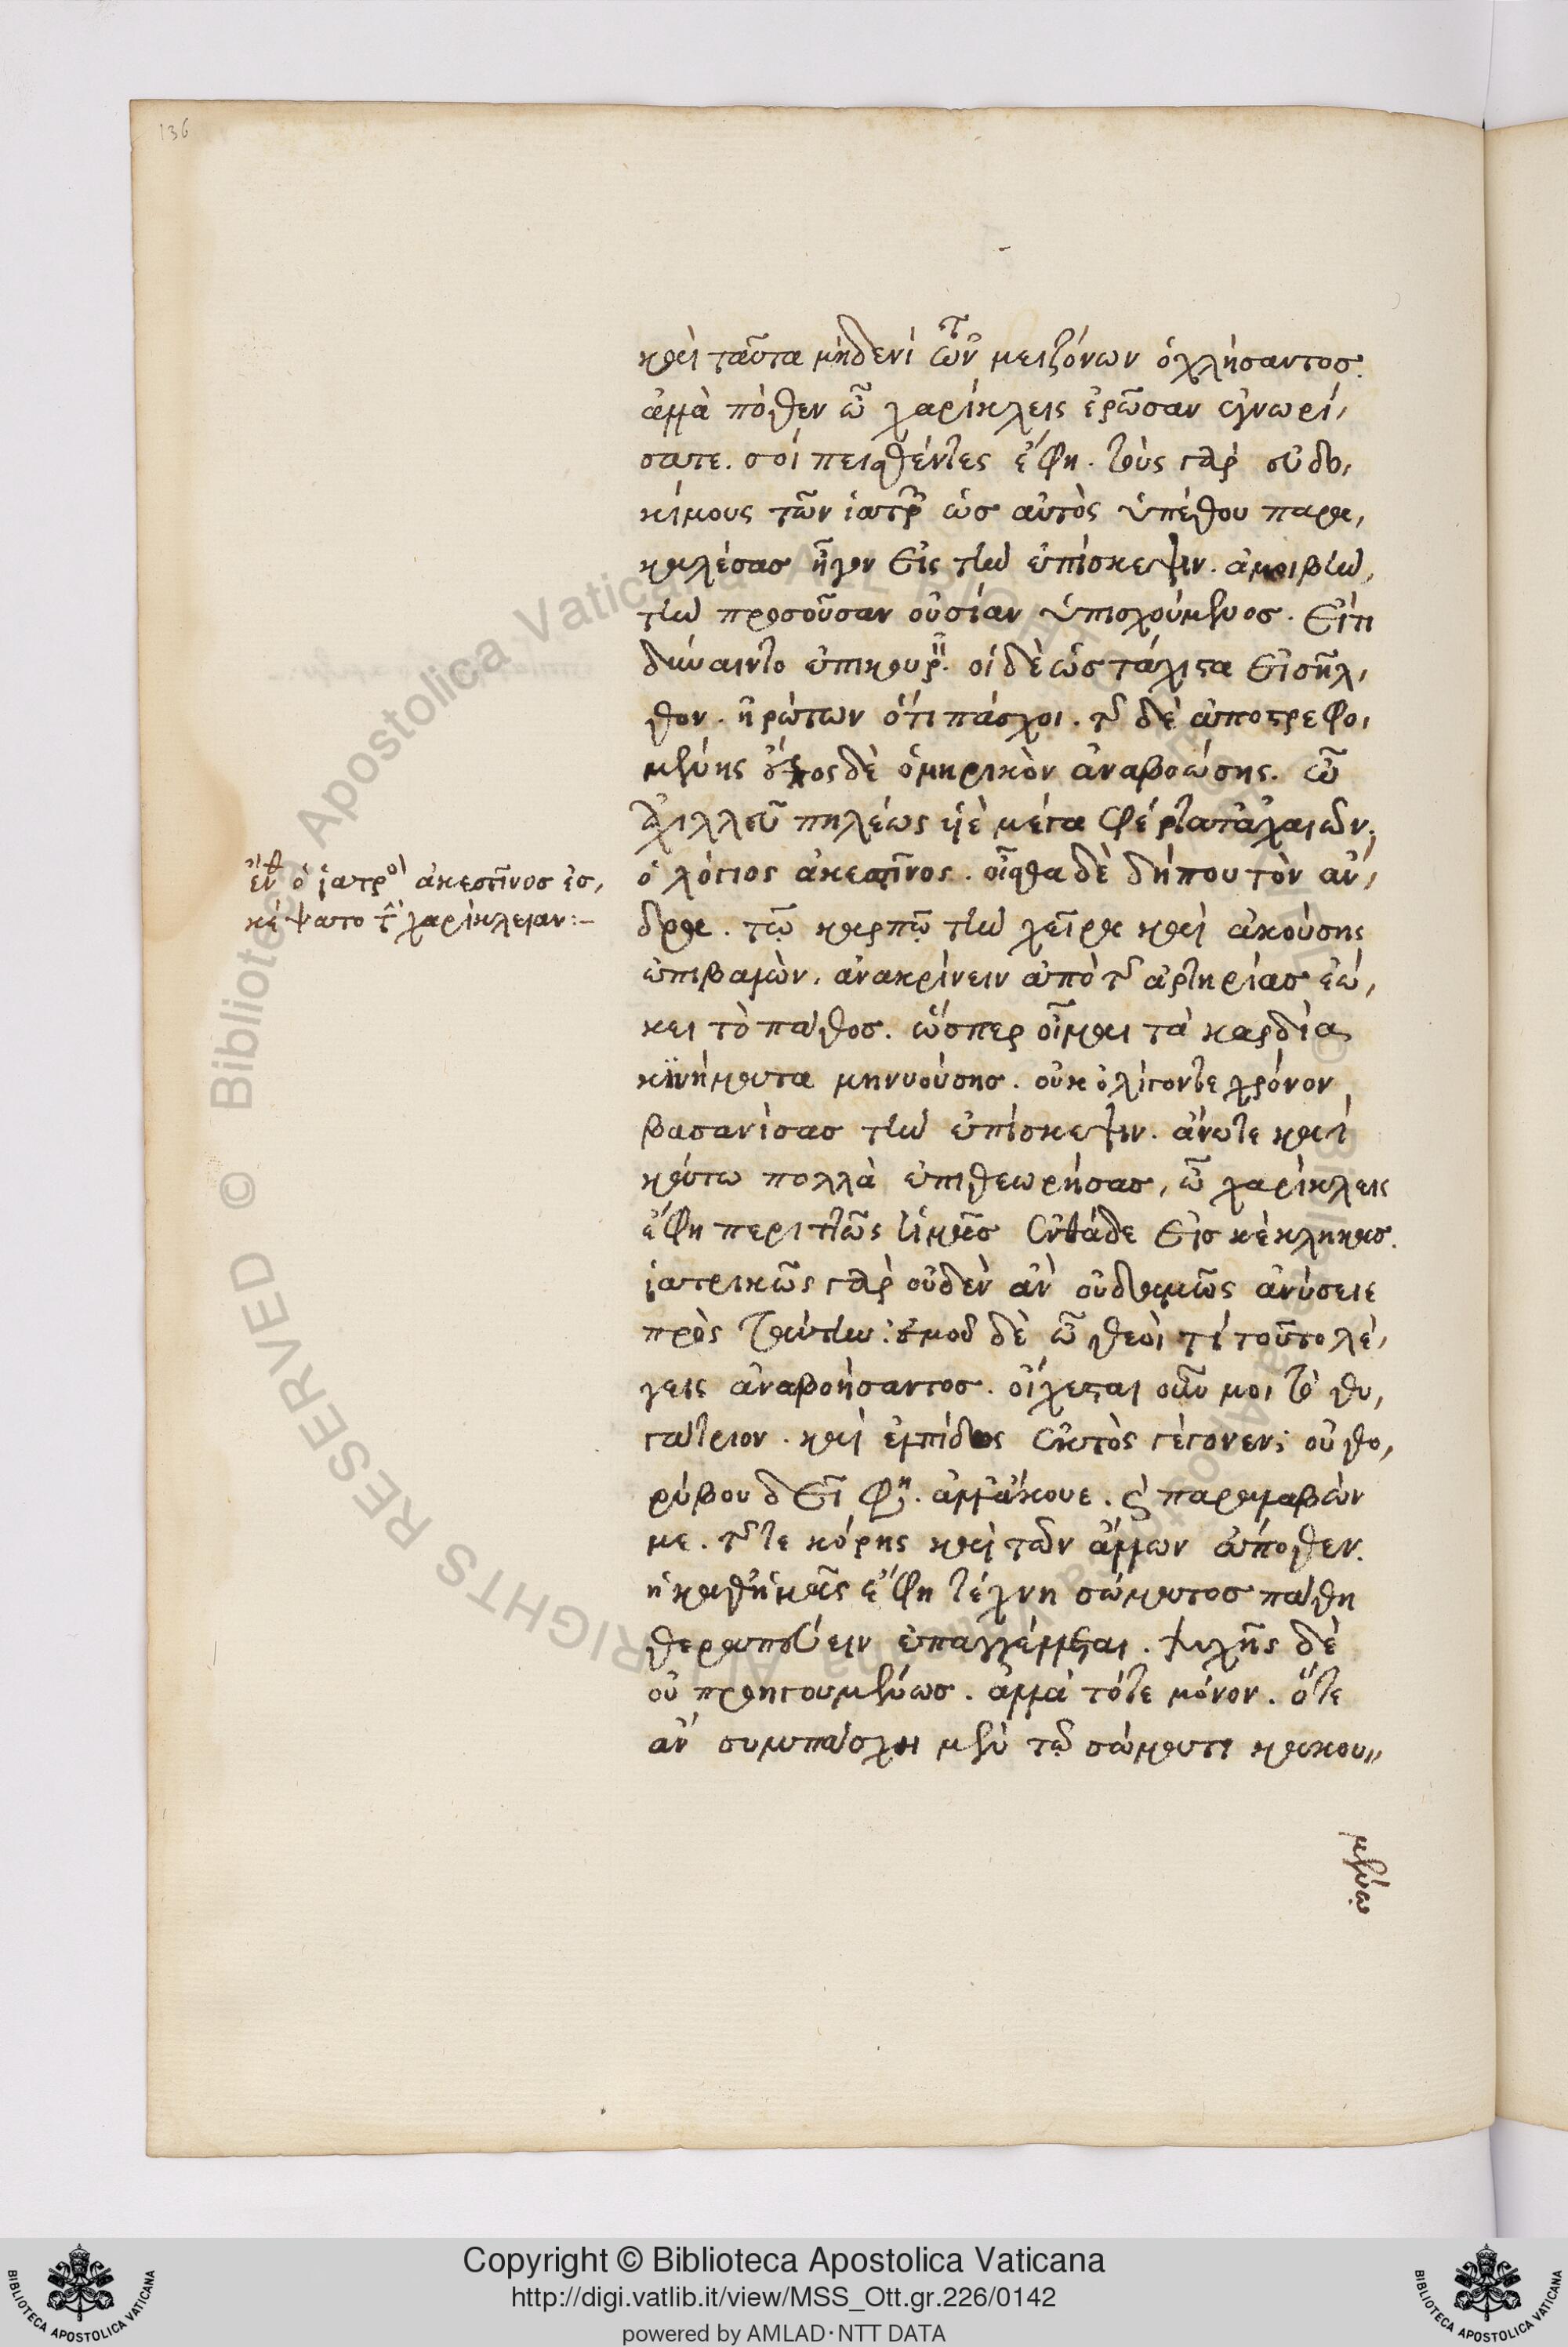 136
καὶ ταῦτα μηδενὶ τῶν μειζόνων ὀχλήσαντος.
ἀλλὰ πόθεν ὦ χαρίκλεις ἐρῶσαν ἐγνωρί,
σατε. σοὶ πεισθέντες ἔφη. τοὺς γὰρ εὐδο,
κίμους τῶν ἰατρῶν ὡς αὐτὸς ὑπέθου παρα,
καλέσας ἦγον εἰς τὴν ἐπίσκεψιν. ἀμοιβὴν,
τὴν προσοῦσαν οὐσίαν ὑπισχούμενος. εἴ τι
δύναιντο ἐπικουρεῖν. οἱ δὲ ὡς τάχιστα εἰσῆλ,
θον. ἠρώτων ὅ τι πάσχοι. τῆς δὲ ἀποστρεφο,
μένης ἔπος δὲ ὁμηρικὸν ἀναβοώσης. ὦ
ἀχιλλεῦ πηλέως υἱὲ μέγα φέρτατ' ἀχαιῶν,
ὁ λόγιος ἀκεστῖνος. οἶσθα δὲ δήπου τὸν ἄν,
δρα. τῷ καρπῷ τὴν χεῖρα καὶ ἀκούσης
ἐπιβαλὼν. ἀνακρίνειν ἀπὸ τῆς ἀρτηρίας ἐῴ,
κει τὸ πάθος. ὥσπερ οἶμαι τὰ καρδίας
κϊνήματα μηνυούσης. οὐκ ὀλίγον τε χρόνον
βασανίσας τὴν ἐπίσκεψιν. ἄνω τε καὶ
κάτω πολλὰ ἐπιθεωρήσας, ὦ χαρίκλεις
ἔφη περιττῶς ἡμᾶς ἐνθάδε εἰσκέκληκας.
ἰατρικῶς γὰρ οὐδὲν ἂν οὐδαμῶς ἀνύσειε
πρὸς ταύτην: ἐμοῦ δὲ ὦ θεοὶ τί τοῦτο λέ,
γεις ἀναβοήσαντος. οἴχεται οὖν μοι τὸ θυ,
γάτριον. καὶ ἐλπίδος ἐκτὸς γέγονεν; οὐ θο,
ρύβου δεῖ φησὶν. ἀλλ' ἄκουε. καὶ παραλαβών
με. τῆς τε κόρης καὶ τῶν ἄλλων ἄποθεν.
ἡ καθ' ἡμᾶς ἔφη τέχνη σώματος πάθη
θεραπεύειν ἐπαγγέλλεται. ψυχῆς δὲ
οὐ προηγουμένως. ἀλλὰ τότε μόνον. ὅτε
ἂν συμπάσχῃ μὲν τῷ σώματι κακου,,
μένῳ
ἔνθα ὁ ἰατρὸς ἀκεστῖνος ἐσ,
κέψατο τὴν χαρίκλειαν:–
© Biblioteca Apostolica Vaticana ALL RIGHTS RESERVED
Copyright © Biblioteca Apostolica Vaticana
http://digi.vatlib.it/view/MSS_Ott.gr.226/0142
powered by AMLAD·NTT DATA
BIBLIOTECA APOSTOLICA VATICANA
BIBLIOTECA APOSTOLICA VATICANA